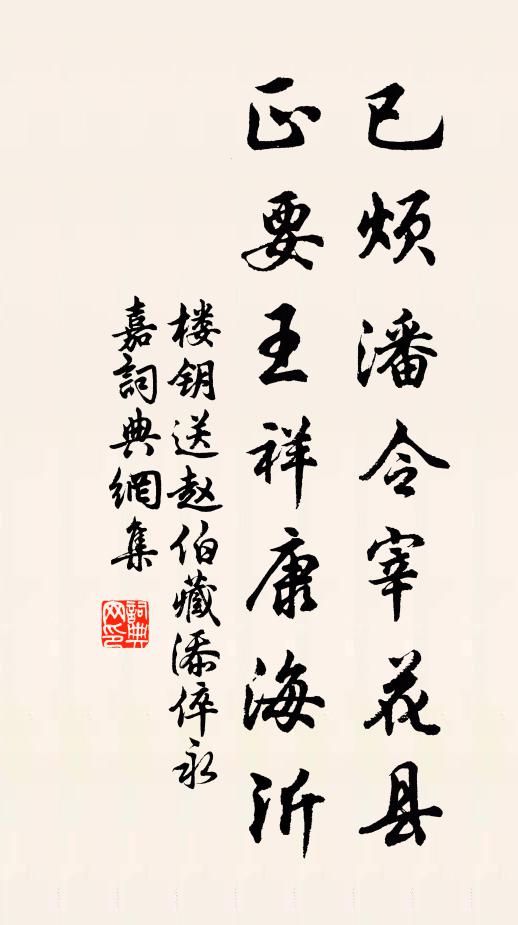 已烦潘令宰花县
正要王祥康海沂
楼钥送赵伯藏添倅永
嘉詞典網集
詞典网印